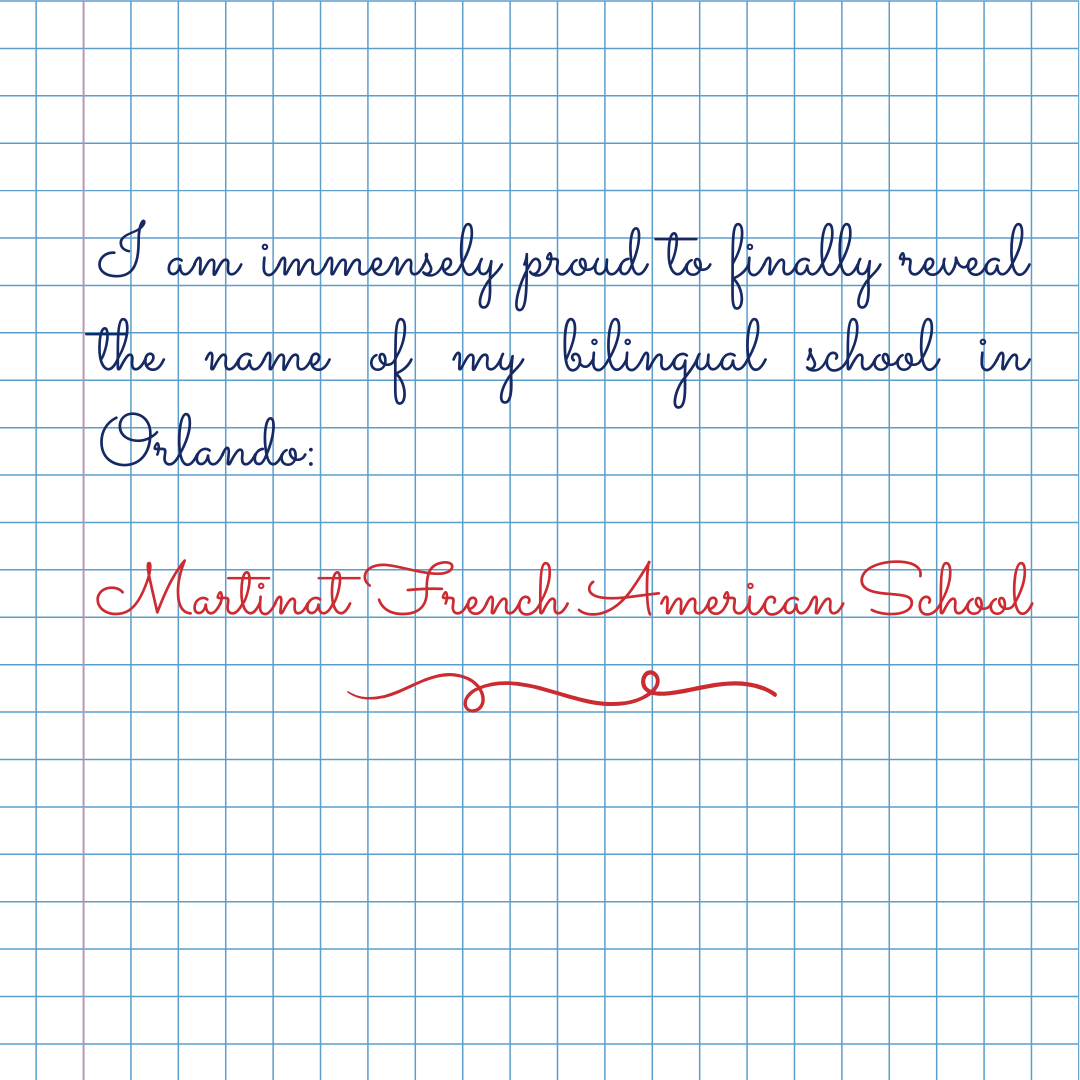 I am immensely proud to finally reveal
the name of my bilingual school in
Orlando:
Martinat French American School